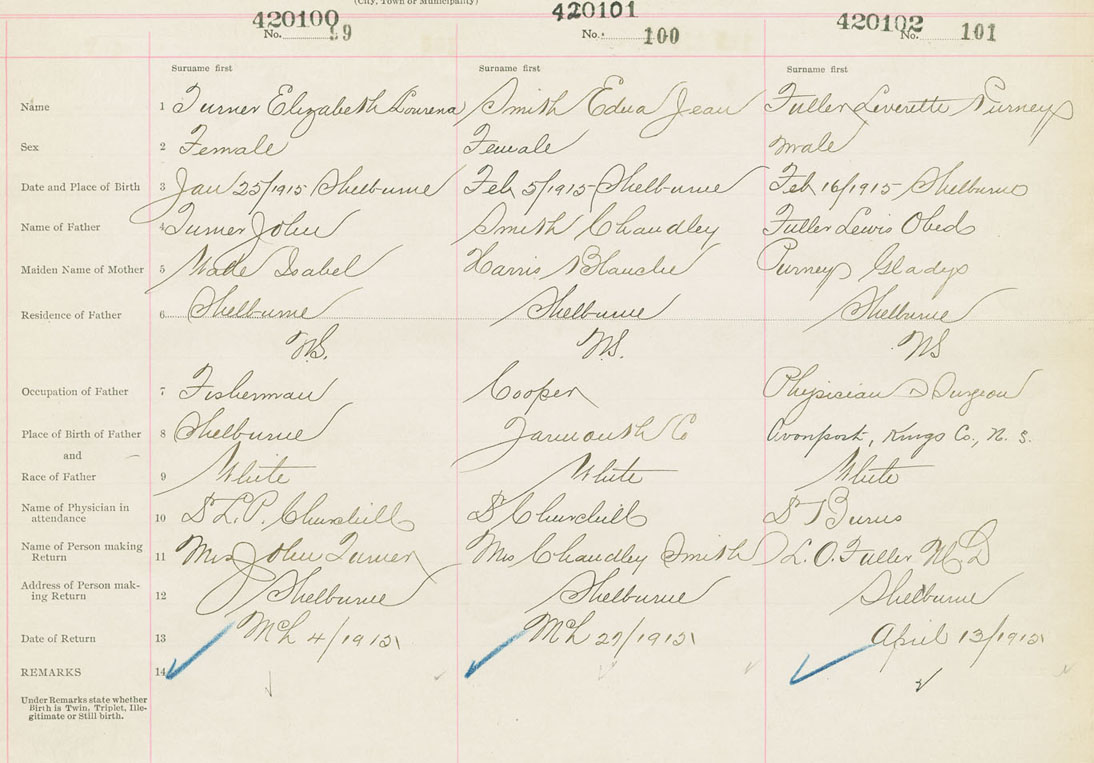 (City, Town or Municipality)
420100 420101 420102
No. 99 No. 100 No. 101
Surname first Surname first Surname first
Name 1 Turner Elizabeth Lourena Smith Edna Jean Fuller Leverette Purney
Sex 2 Female Female male
Date and Place of Birth 3 Jan 25/1915 Shelburne Feb 5/1915 Shelburne Feb 16/1915 Shelburne
Name of Father 4 Turner John Smith Chandley Fuller Lewis Obed
Maiden Name of Mother 5 Wade Isabel Harris Blanche Purney Gladys
Residence of Father 6 Shelburne Shelburne Shelburne
N.S. N.S. NS
Occupation of Father 7 Fisherman Cooper Physician & Surgeon
Place of Birth of Father 8 Shelburne Yarmouth Co Avonport, Kings Co., N. S.
and
Race of Father 9 White White White
Name of Physician in
attendance 10 Dr L. P. Churchill Dr Churchill Dr Burns
Name of Person making
Return 11 Mrs John Turner Mrs Chandley Smith L. O. Fuller M.D
Address of Person mak-
ing Return 12 Shelburne Shelburne Shelburne
Date of Return 13 Mch 4/1915 Mch 29/1915 April 13/1915
REMARKS 14
Under Remarks state whether
Birth is Twin, Triplet, Ille-
gitimate or Still birth.